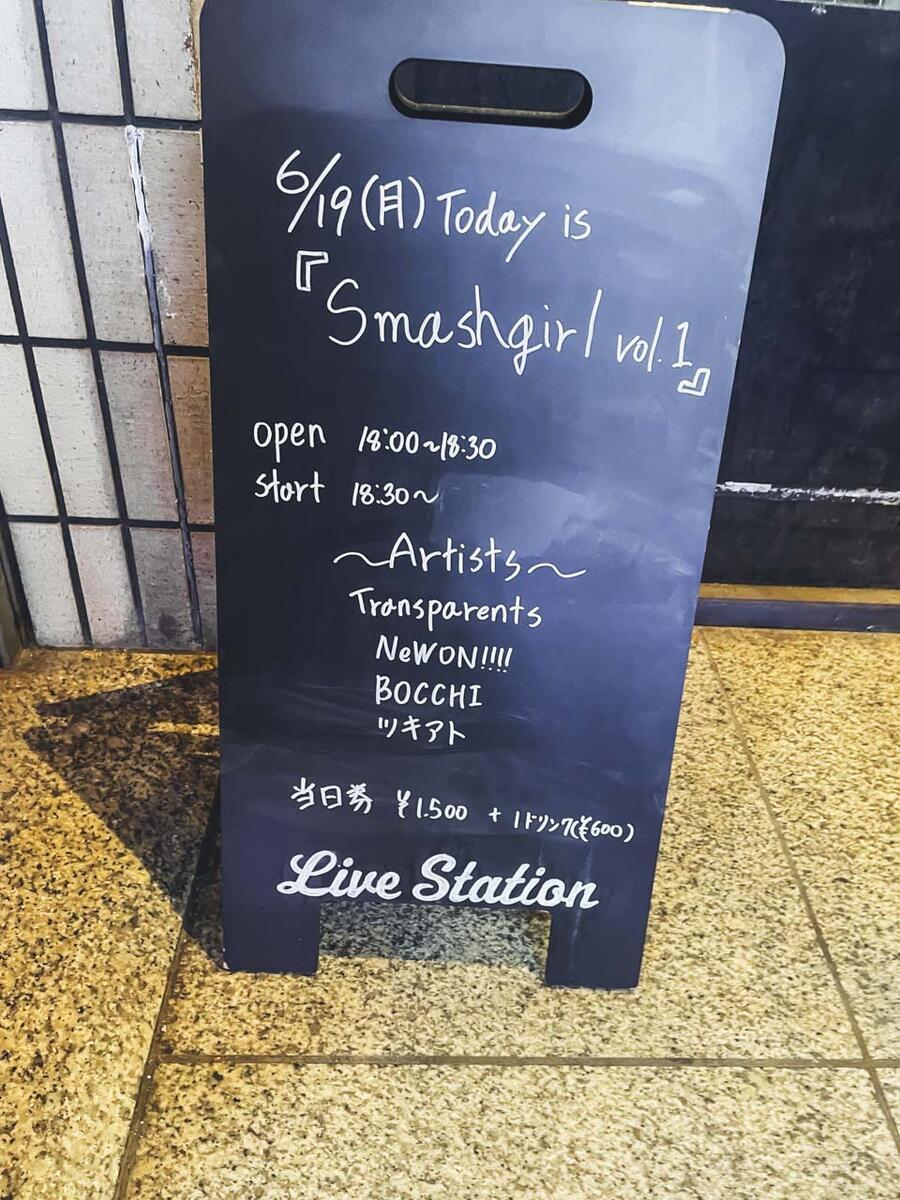 6/19(月) Today is
『Smashgirl vol.1』
open 18:00~18:30
start 18:30~
~Artists~
Transparents
NeWON!!!!
BOCCHI
ツキアト
当日券 ¥1.500 + 1ドリンク(¥600)
Live Station